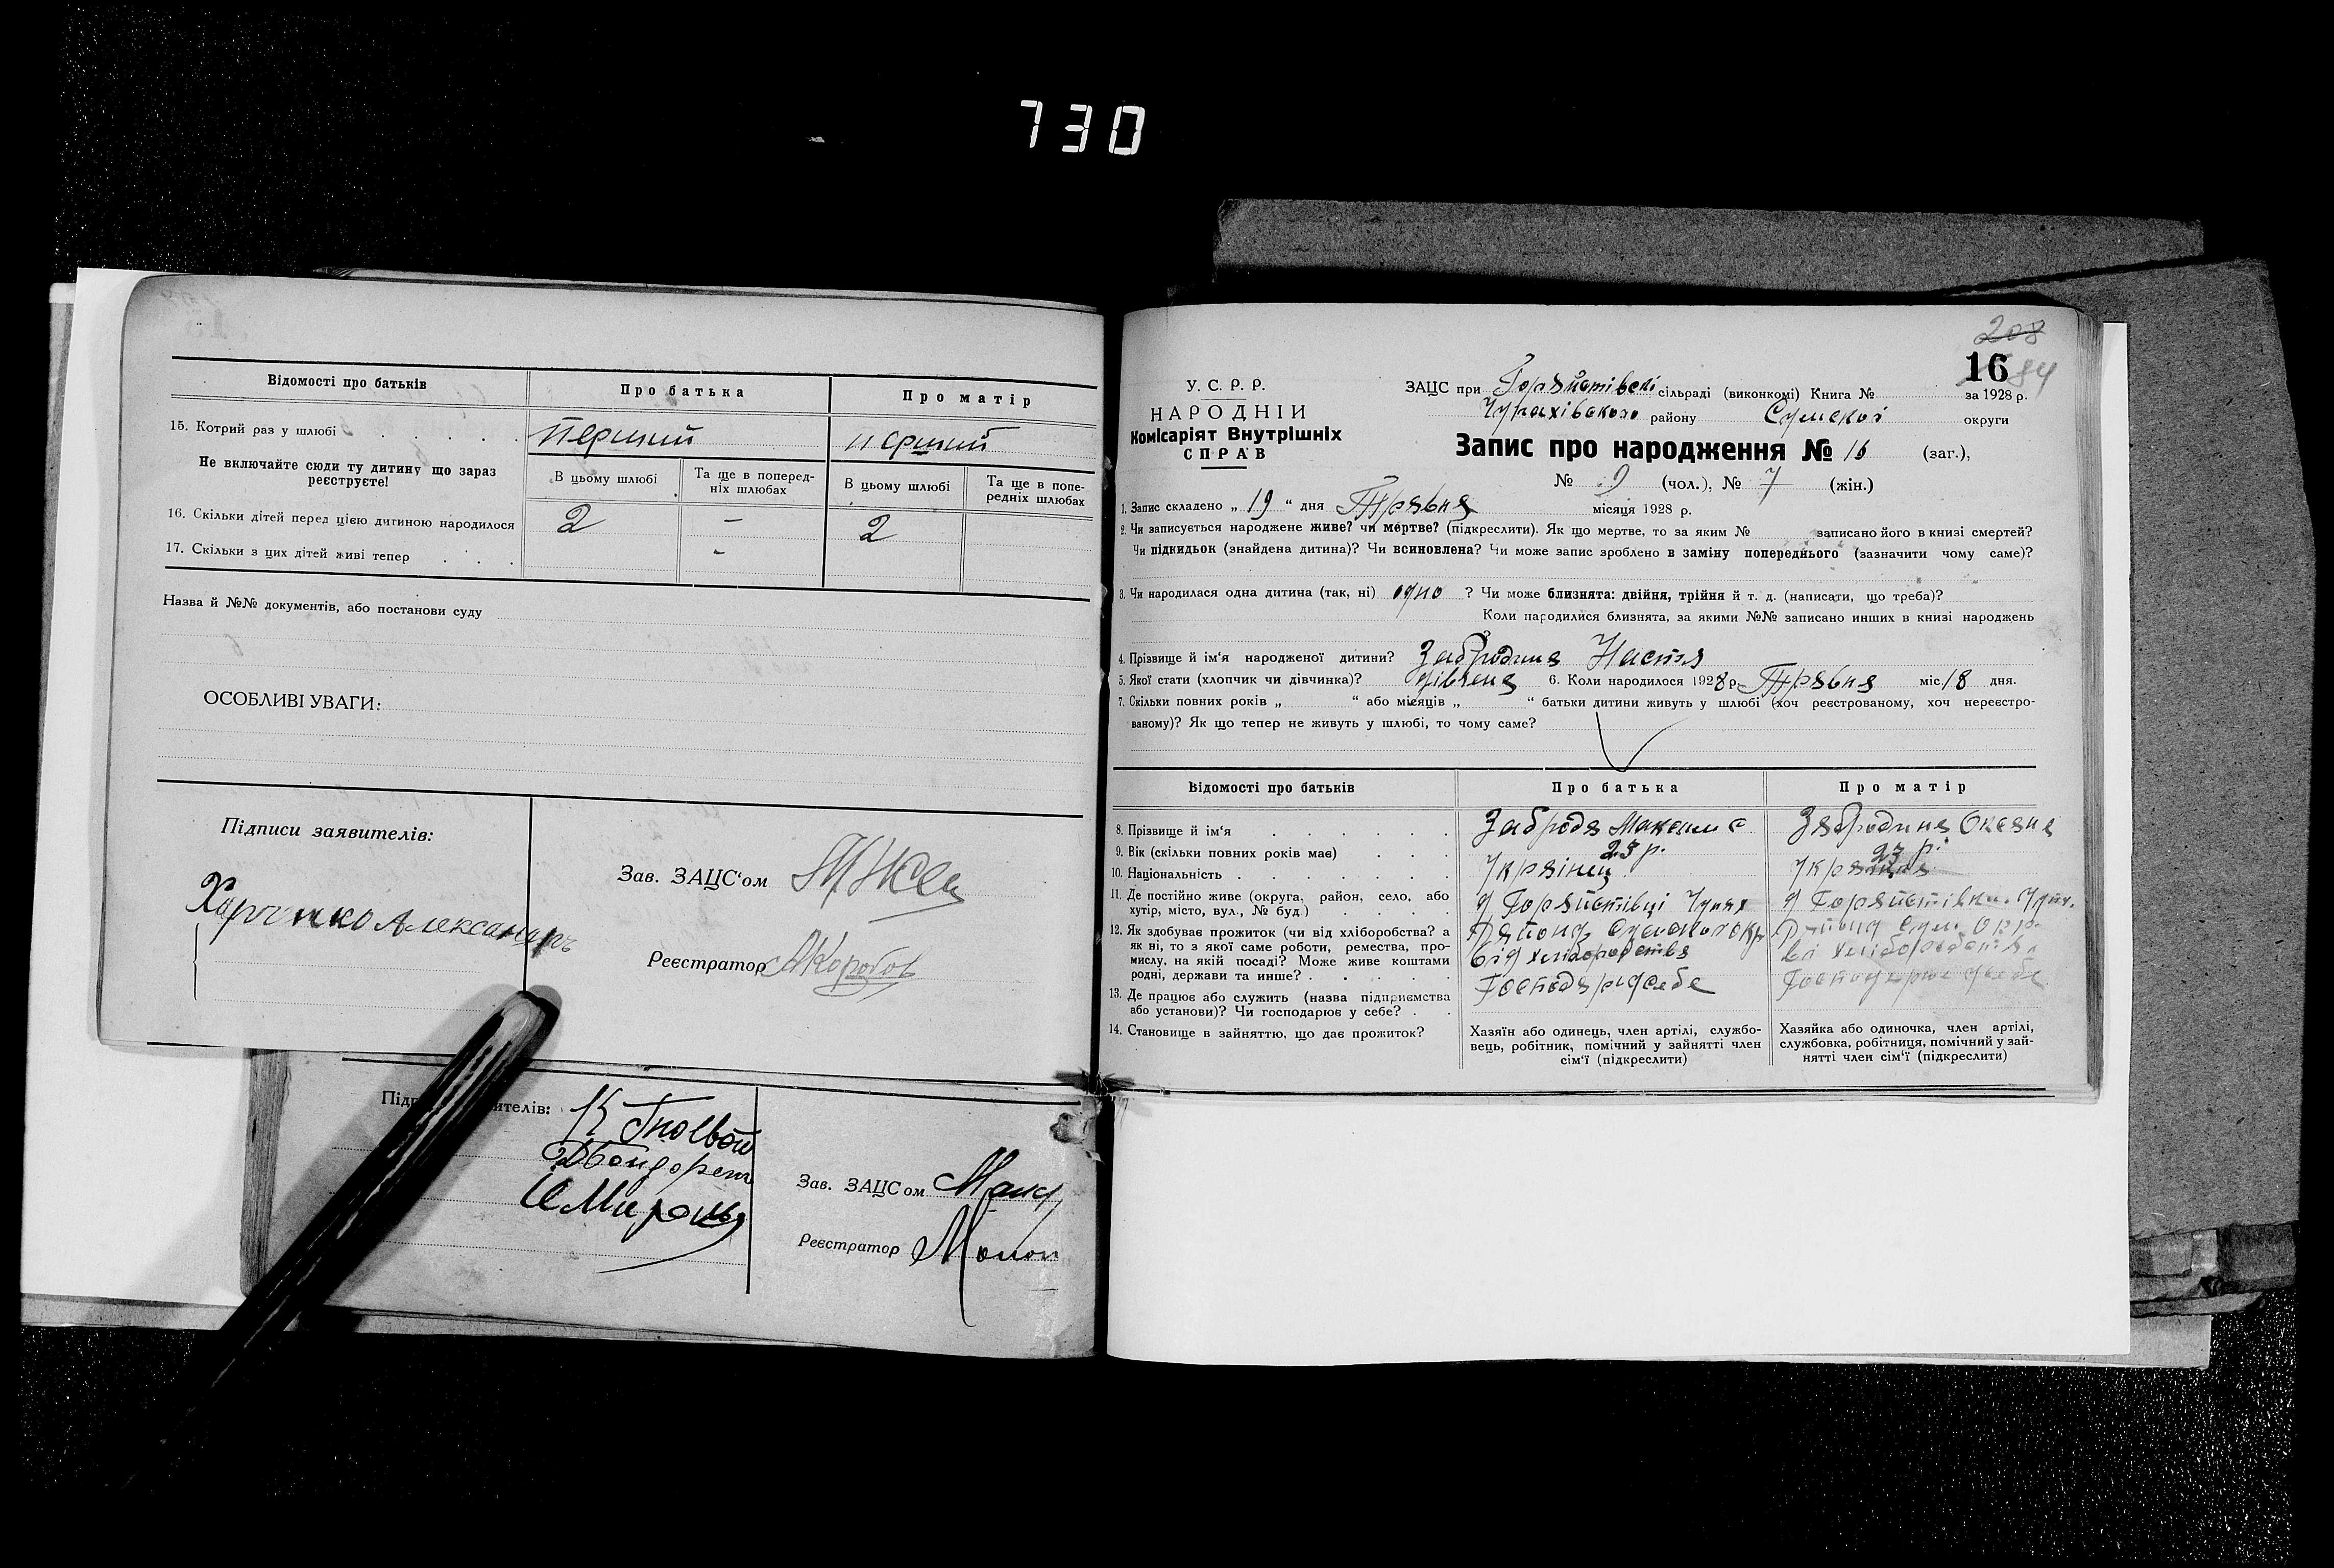 730
Відомості про батьків Про батька Про матір
15. Котрий раз у шлюбі перший перший
Не включайте сюди ту дитину що зараз реєструєте!
В цьому шлюбі Та ще в попередніх шлюбах В цьому шлюбі Та ще в попередніх шлюбах
16. Скільки дітей перед цією дитиною народилося 2 - 2
17. Скільки з цих дітей живі тепер -
Назва й №№ документів, або постанови суду
ОСОБЛИВІ УВАГИ:
Підписи заявителів:
Зав. ЗАЦС'ом
Харченко Александръ
Реєстратор АКоробов
Зав. ЗАЦСом
Реєстратор
208
16 84
У. С. Р. Р.
НАРОДНІЙ
Комісаріят Внутрішніх
СПРАВ
ЗАЦС при сільраді (виконкомі) Книга № за 1928 р.
району Сумської округи
Запис про народження № 16 (заг.),
№ 9 (чол.), № 7 (жін.)
1. Запис складено „ 19 “ дня Травня місяця 1928 р.
2. Чи записується народжене живе? чи мертве? (підкреслити). Як що мертве, то за яким № записано його в книзі смертей?
Чи підкидьок (знайдена дитина)? Чи всиновлена? Чи може запис зроблено в заміну попереднього (зазначити чому саме)?
3. Чи народилася одна дитина (так, ні) одно ? Чи може близнята: двійня, трійня й т. д. (написати, що треба)?
Коли народилися близнята, за якими №№ записано инших в книзі народжень
4. Прізвище й ім'я народженої дитини? Забродина Настя
5. Якої стати (хлопчик чи дівчинка)? 6. Коли народилося 1928 р. Травня міс. 18 дня.
7. Скільки повних років „ “ або місяців „ “ батьки дитини живуть у шлюбі (хоч реєстрованому, хоч нереєстро-
ваному)? Як що тепер не живуть у шлюбі, то чому саме?
Відомості про батьків Про батька Про матір
8. Прізвище й ім'я Заброда Максим Забродина Оксана
9. Вік (скільки повних років має) 23 р. 23 р.
10. Національність Українец Українка
11. Де постійно живе (округа, район, село, або
хутір, місто, вул., № буд.)
12. Як здобуває прожиток (чи від хліборобства? а
як ні, то з якої саме роботи, ремества, про-
мислу, на якій посаді? Може живе коштами
родні, держави та инше? від хліборобства від хліборобства
13. Де працює або служить (назва підприємства
або установи)? Чи господарює у себе?
14. Становище в зайняттю, що дає прожиток?
Хазяїн або одинець, член артілі, службо-
вець, робітник, помічний у зайнятті член
сім'ї (підкреслити)
Хазяйка або одиночка, член артілі,
службовка, робітниця, помічний у зай-
нятті член сім'ї (підкреслити)